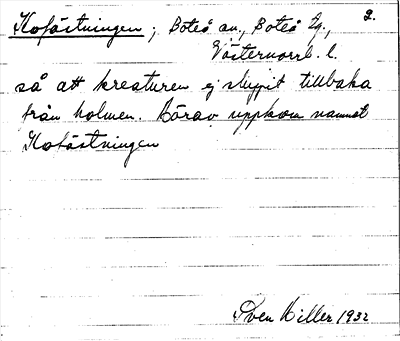 Kofästningen; Boteå sn., Boteå tg., 2.
Västernorrl. l.
så att kreaturen ej sluppit tillbaka
från holmen. Därav uppkom namnet
Kofästningen
Sven Hiller 1932